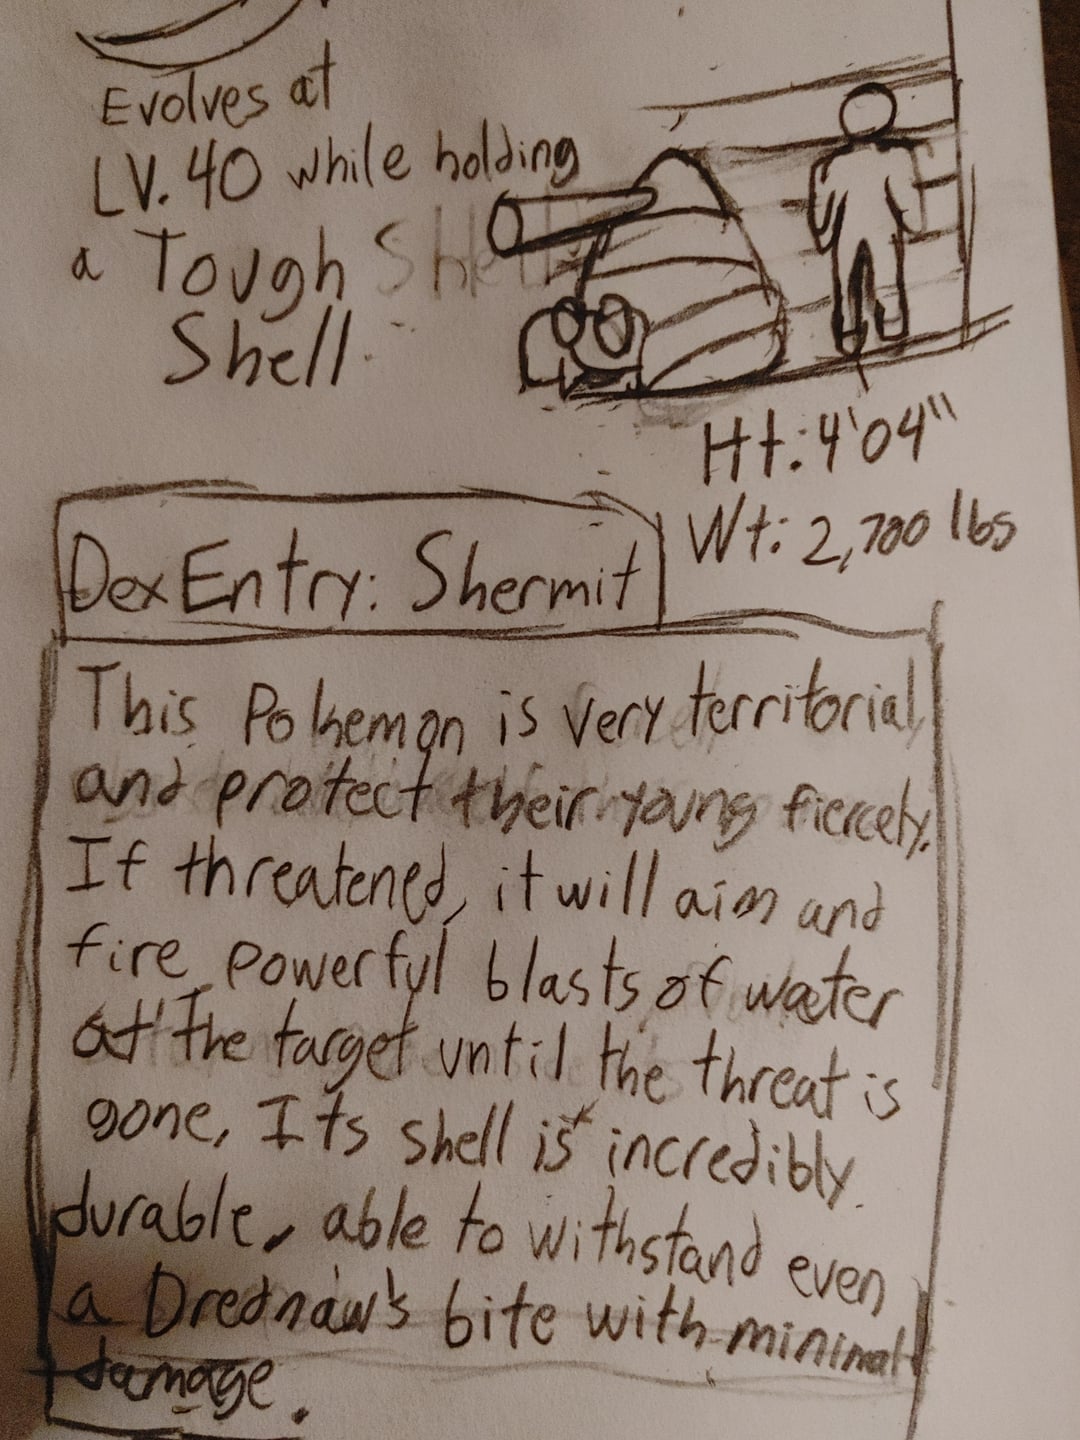 Evolves at
LV. 40 while holding
a Tough Shell
Shell
Ht: 4'04"
Wt: 2,700 lbs
Dex Entry: Shermit
This Pokemon is very territorial
and protect their young fiercely.
If threatened, it will aim and
fire powerful blasts of water
at the target until the threat is
gone, Its shell is incredibly
durable, able to withstand even
a Drednaw's bite with minimal
damage.